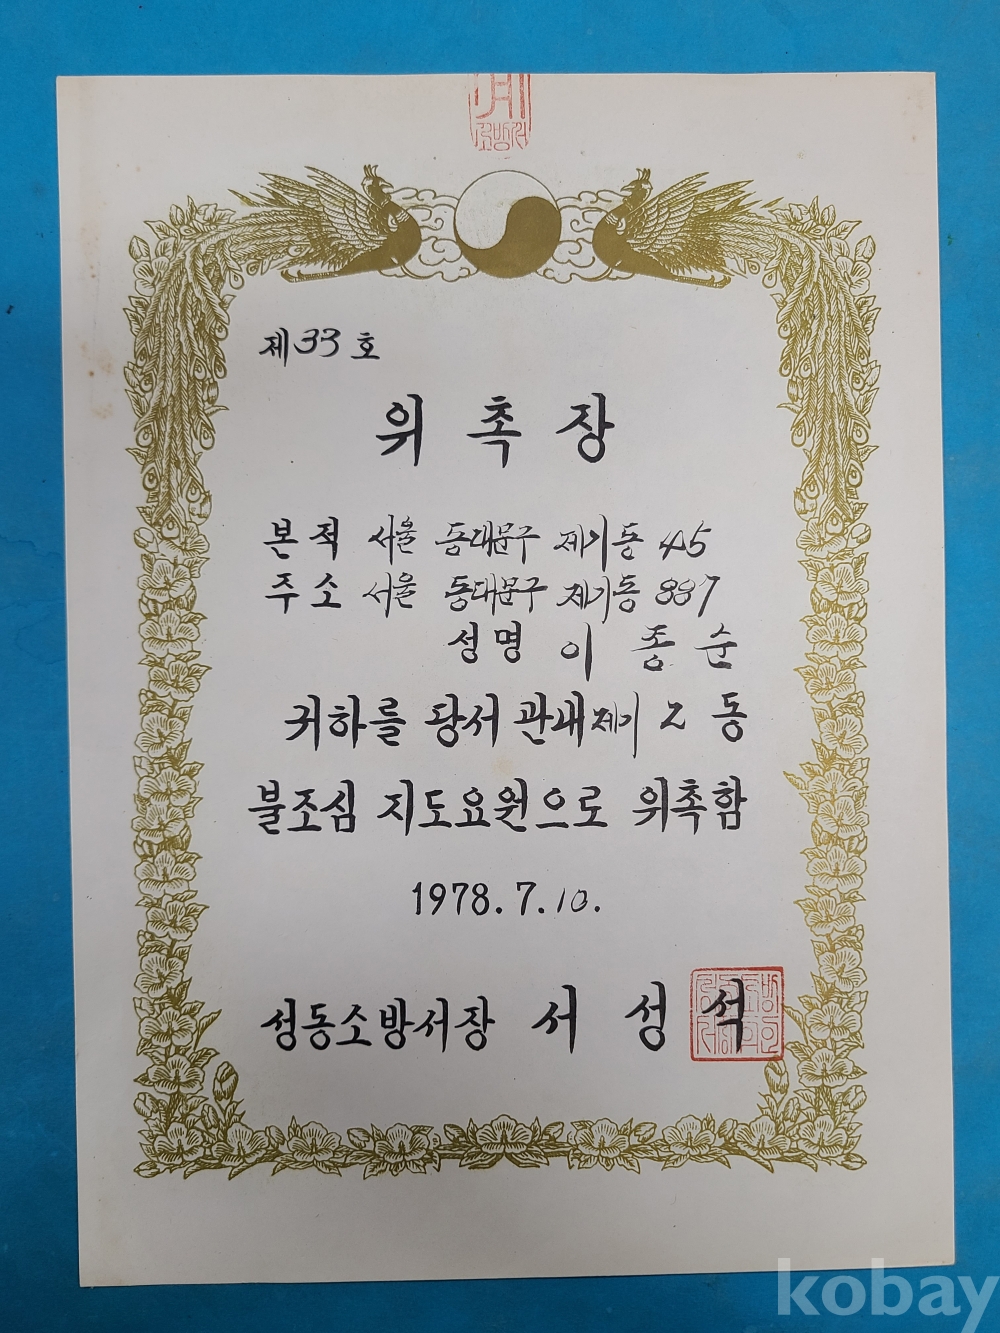 계
소방서
제33호
위촉장
본적 서울 동대문구 제기동 45
주소 서울 동대문구 제기동 887
성명 이종순
귀하를 당서 관내 제기 2 동
불조심 지도요원으로 위촉함
1978.7.10.
성동소방서장 서성석
kobay